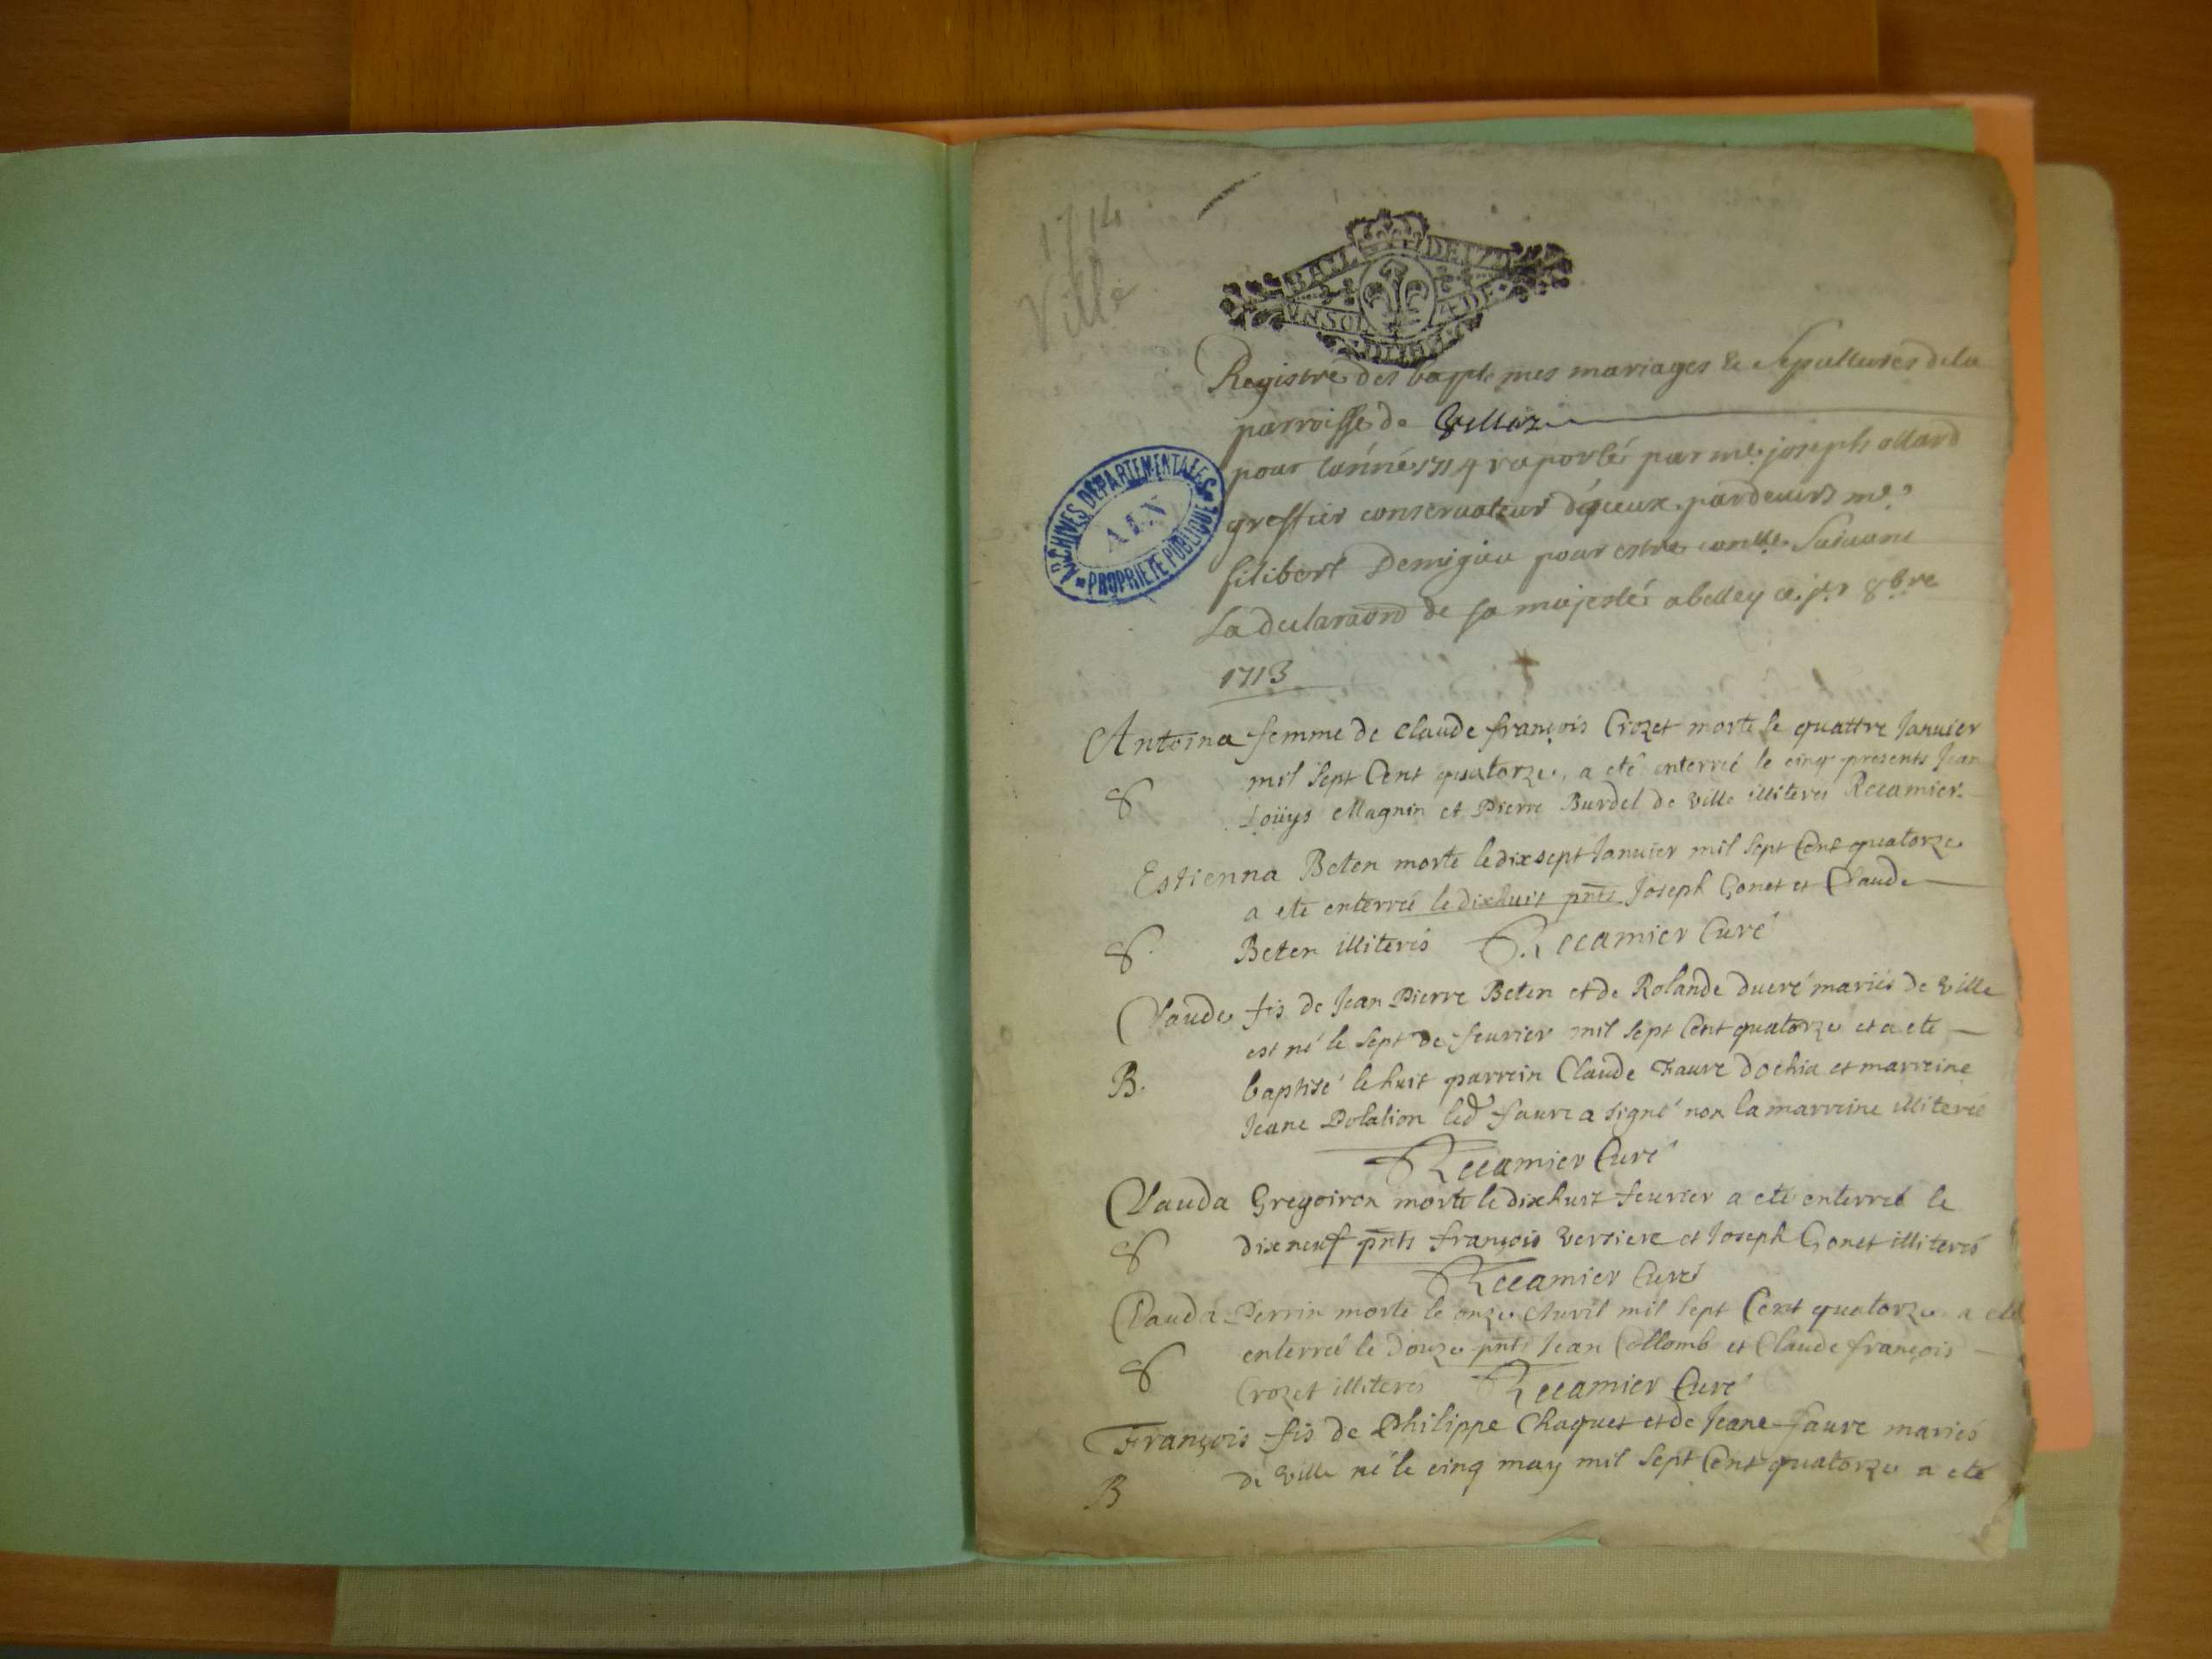 1714
Ville
BAIL DE
UN SOL
ARCHIVES DÉPARTEMENTALES
AIN
PROPRIÉTÉ PUBLIQUE
Registre des baptemes mariages & Sepultures dela
parroisse de
pour lannée 1714 raporté par me. joseph ollard
greffier conservateur diceux pardevers me.
filibert Demigieu pour estre Suivant
La declaraõn de sa majesté a belley ce 8bre
1713
Antoina femme de Claude françois Crozet morte le quattre Januier
S mil Sept Cent quatorze, a eté enterrée le cinq presents Jean
Loüys Magnin et Pierre Burdel de Ville illiterés Recamier
Estienna Beten morte le dixsept Januier mil Sept Cent quatorze
a eté enterrée le dixhuit pñts Joseph Gonet et Claude
S. Beten illiterés Recamier Curé
Claude fis de Jean Pierre Beten et de Rolande ducré mariés de Ville
est né le Sept de feurier mil Sept Cent quatorze et a eté
B. baptisé le huit parrein Claude Faure dochia et marreine
Jeane Polalion led faure a signé non la marreine illiterée
Recamier Curé
Clauda Gregoiron morte le dixhuit feurier a eté enterreé le
S dixneuf pñts françois Verriere et Joseph Gonet illiterés
Recamier Curé
Clauda Perrin morte le onze Avril mil Sept Cent quatorze a eté
S. enterreé le Douze pñts Jean Collomb et Claude françois
Crozet illiterés Recamier Curé
François fis de Philippe Chaquet et de Jeane faure mariés
B de Ville né le cinq may mil Sept Cent quatorze a eté